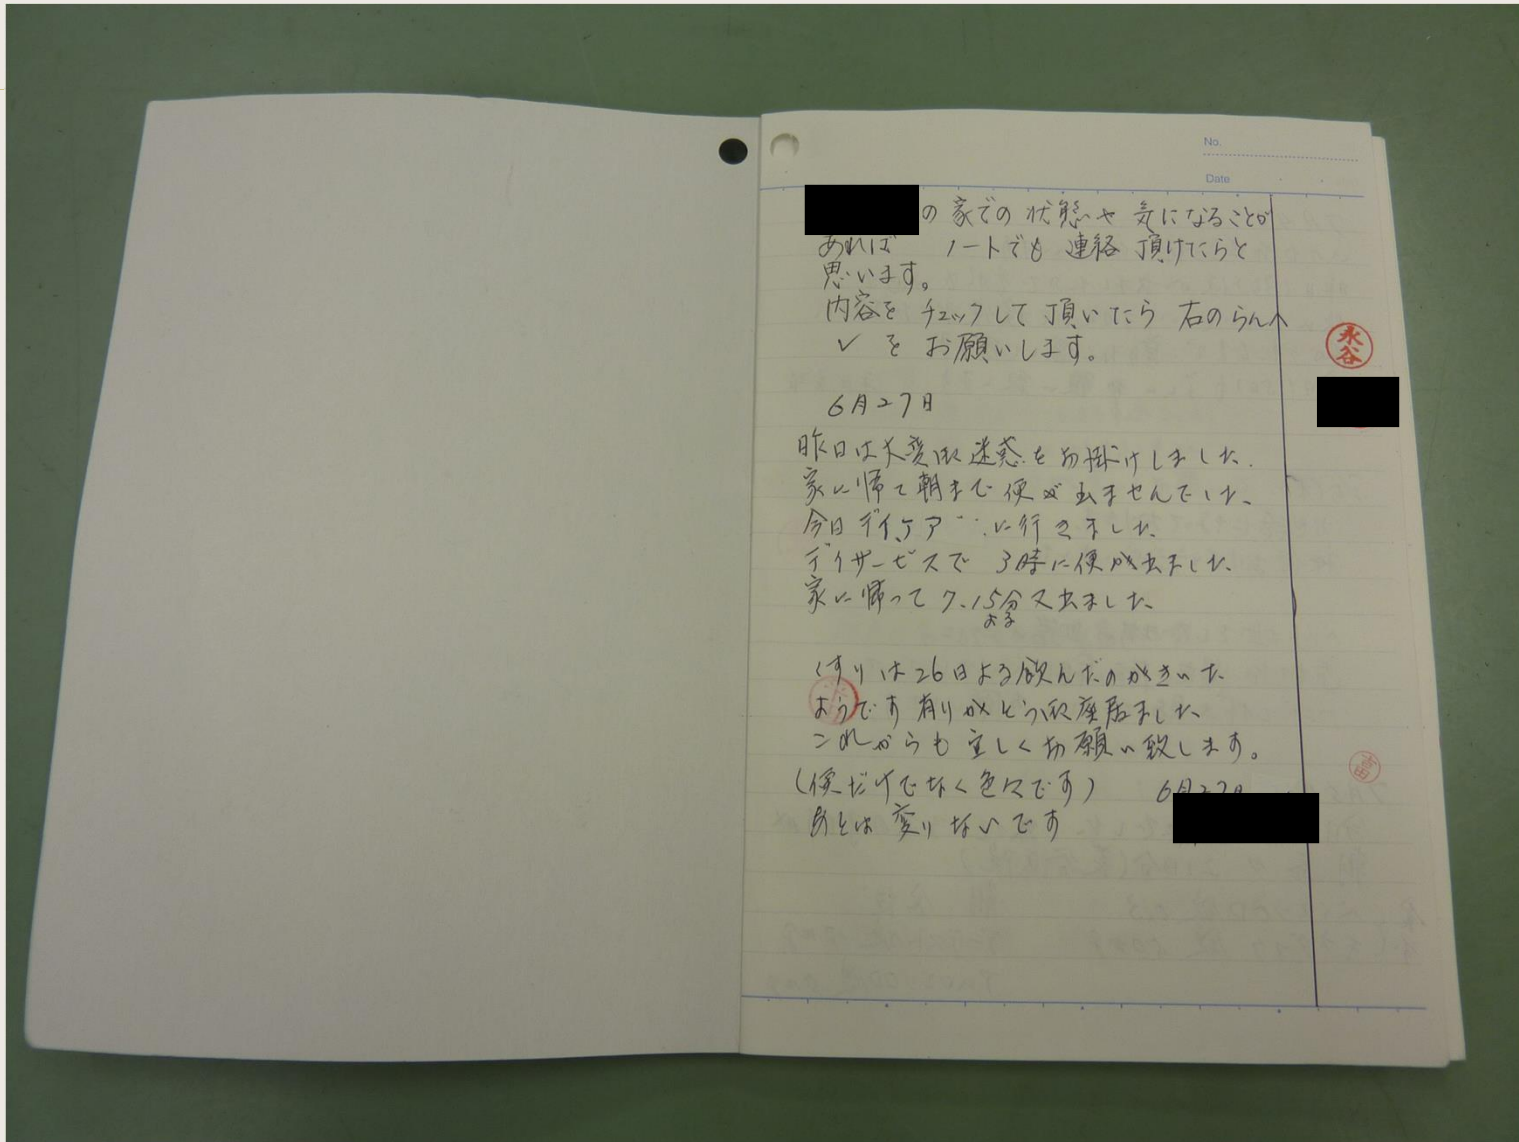 No.
Date
の家での状態や気になることが
あれば ノートでも連絡頂けたらと
思います。
内容をチェックして頂いたら右のらんへ
✓をお願いします。
永谷
6月27日
昨日は大変御迷惑をお掛けしました。
家に帰て朝まで便が出ませんでした、
今日デイケア に行きました
デイサービスで 3時に便が出ました、
家に帰って7.15分又出ました、
よる
くすりは26日よる飲んだのがきいた
ようです有りがとう御座居ました、
これからも宜しくお願い致します。
(便だけでなく色々です) 6月27日
あとは変りないです